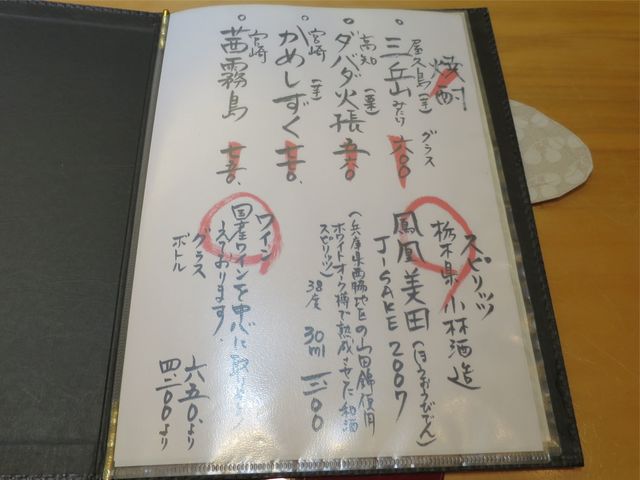 焼酎
グラス
屋久島(芋)
三岳山みたけ 六〇〇
高知(栗)
ダバダ火振 五六〇
宮崎(芋)
かめしずく 七七〇.
宮崎
茜霧島 七五〇.
スピリッツ
栃木県 小林酒造
鳳凰美田(ほうおうびでん)
J-SAKE 2007
(兵庫県西脇地区の山田錦使用
ホワイトオーク樽で熟成させた和酒
スピリッツ) 38度 30ml
ワイン
国産ワインを中心に取り
おります.
グラス 六五〇.より
ボトル 四.二〇〇より